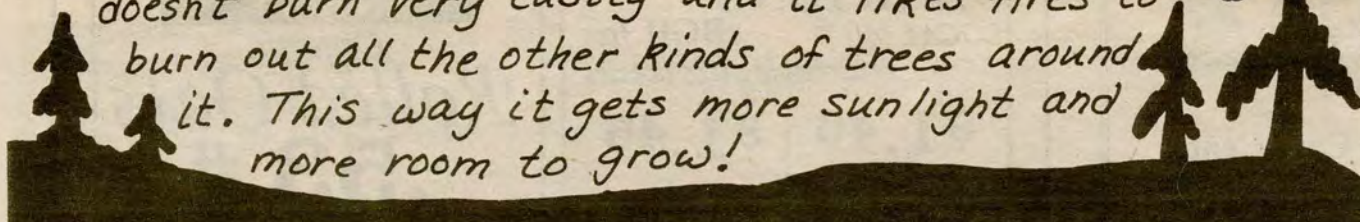 doesn't burn very easily and it likes fires to
burn out all the other kinds of trees around
it. This way it gets more sunlight and
more room to grow!